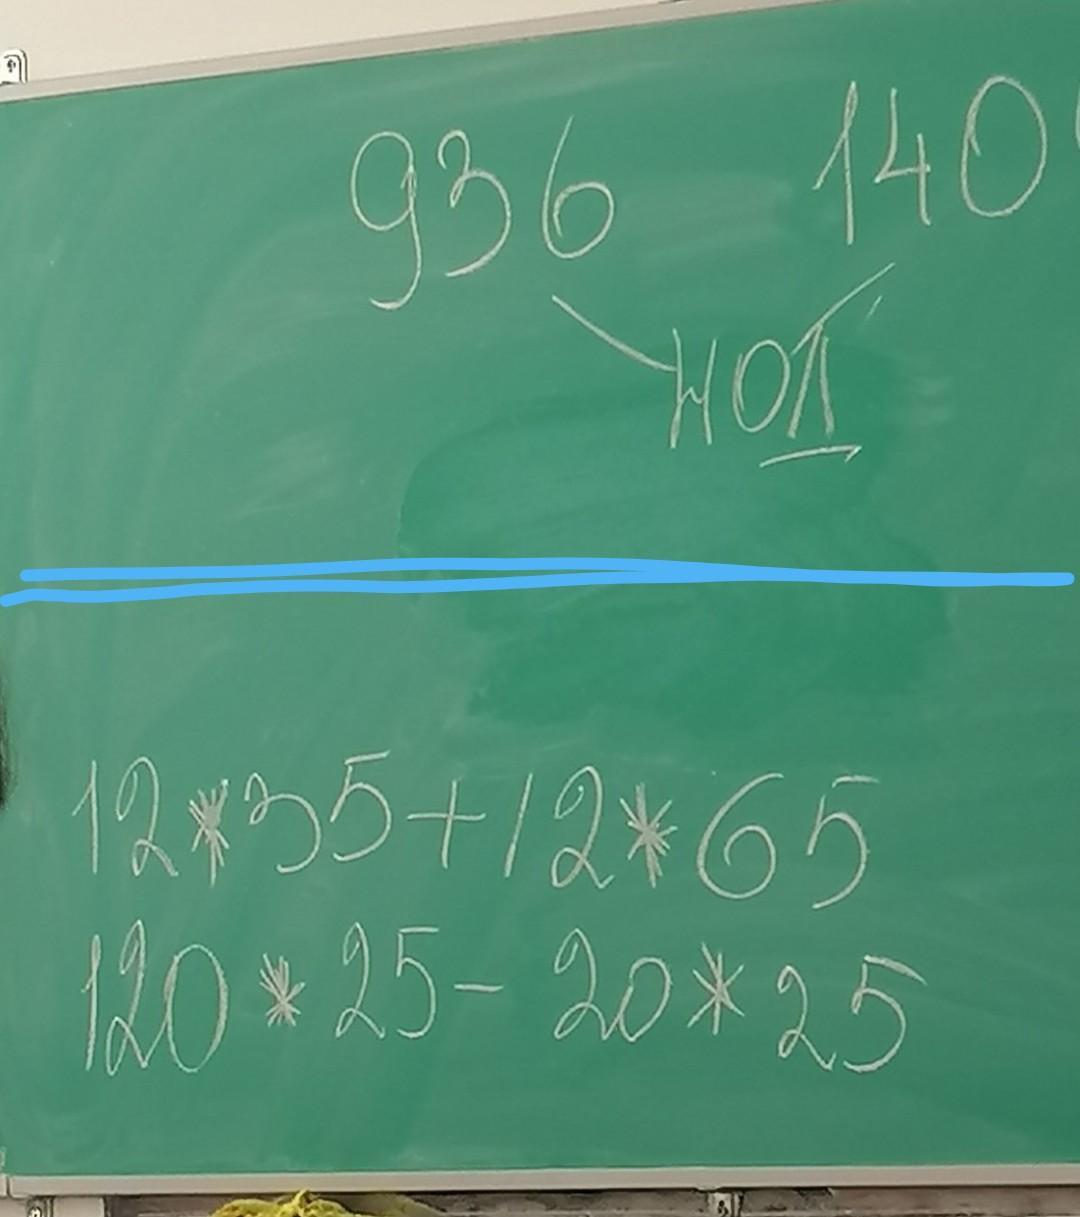 936 140
НОД
12*35+12*65
120*25-20*25